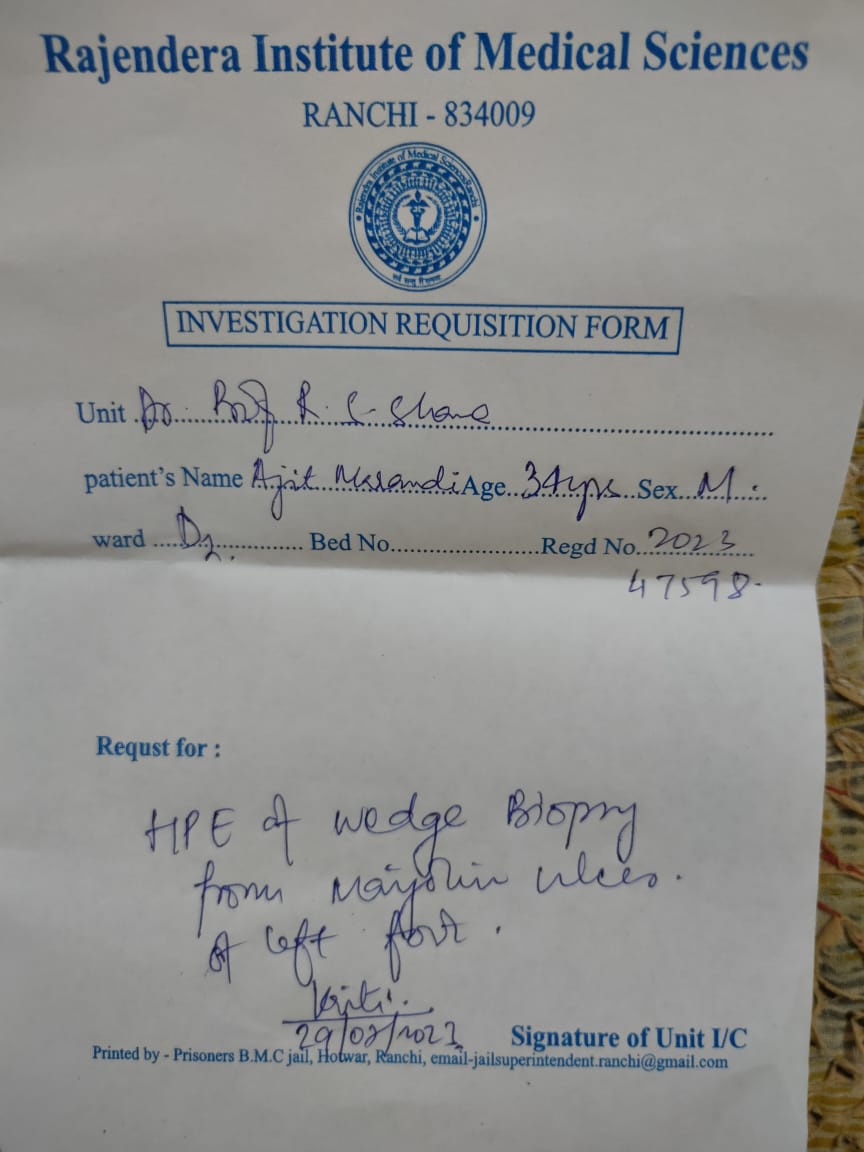 Rajendera Institute of Medical Sciences
RANCHI - 834009
Rajendra Institute of Medical Sciences Ranchi
INVESTIGATION REQUISITION FORM
Unit Dr. Prof R. S.
patient's Name Ajit Marandi Age 34yrs Sex M.
ward D2. Bed No. Regd No. 2023
47598.
Requst for :
HPE of wedge Biopsy
from Marjolin ulcer.
of left foot.
Kriti.
29/08/2023
Signature of Unit I/C
Printed by - Prisoners B.M.C jail, Hotwar, Ranchi, email-jailsuperintendent.ranchi@gmail.com